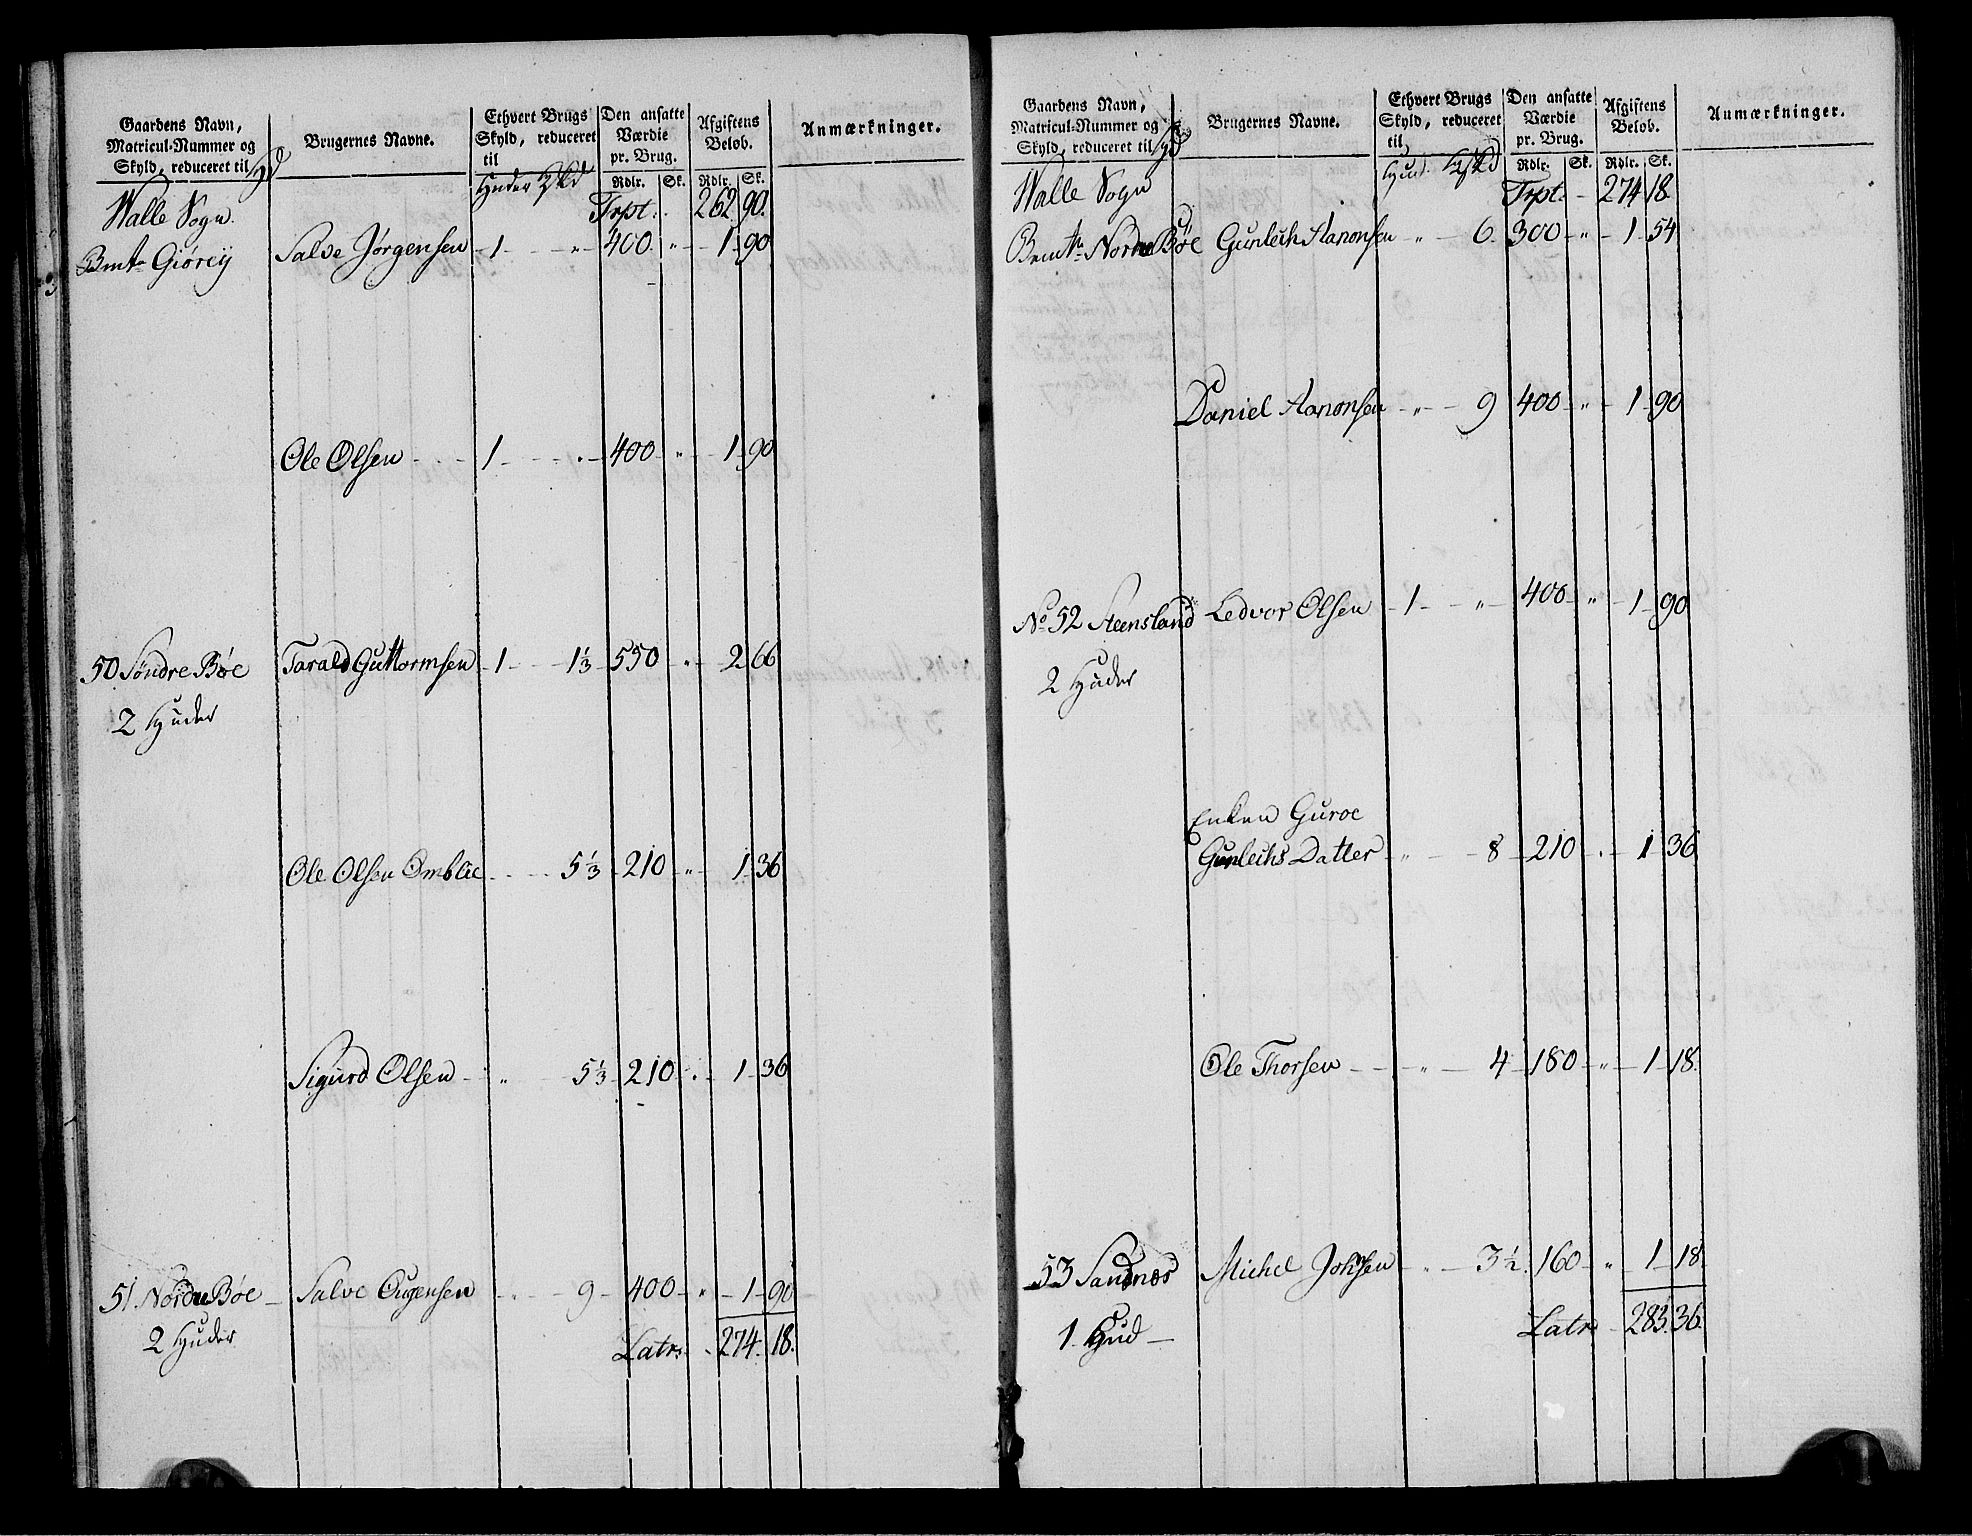 Gaardens Navn, Matricul-Nummer og Skyld, reduceret til Hd | Brugernes Navne. | Ethvert Brugs Skyld, reduceret til Huder | Den ansatte Værdie pr. Brug. Rdlr. Sk. | Afgiftens Beløb. Rdlr. Sk. | Anmærkninger.
Walle Sogn. Trpt. 262 90.
Bmte Giørey Salve Jørgensen 1 " 400 " 1 90
Ole Olsen 1 " 400 " 1 90
50 Søndre Bøe Tarald Guttormsen 1 1⅓ 550 " 2 66
2 Huder
Ole Olsen Omblie 5⅓ 210 " 1 36
Sigurd Olsen " 5⅓ 210 " 1 36
51 Nordre Bøe Salve Ougensen " 9 400 " 1 90
2 Huder Latr. 274. 18.
Gaardens Navn, Matricul-Nummer og Skyld, reduceret til Hd | Brugernes Navne. | Ethvert Brugs Skyld, reduceret til Hud. | Den ansatte Værdie pr. Brug. Rdlr. Sk. | Afgiftens Beløb. Rdlr. Sk. | Anmærkninger.
Walle Sogn Trpt. 274 18
Bemte Nordre Bøe Gunlech Aanonsen " 6 300 " 1 54
Daniel Aanonsen " 9 400 " 1 90
No 52 Steensland Ledvor Olsen 1 " 400 " 1 90
2 Huder
Enken Guroe
Gunlechs Datter " 8 210 " 1 36
Ole Thorsen " 4 180 " 1 18.
53 Sandnæs Michel Johnsen " 3½ 160 " 1 18
1. Hud Latr. 283. 36.